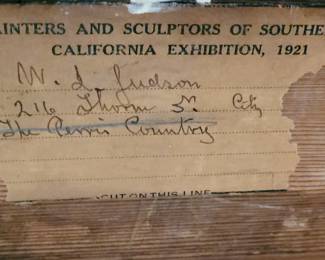 AINTERS AND SCULPTORS OF SOUTHE
CALIFORNIA EXHIBITION, 1921
W. L. Judson
216 Thorn St. City
The Perris Country
CUT ON THIS LINE